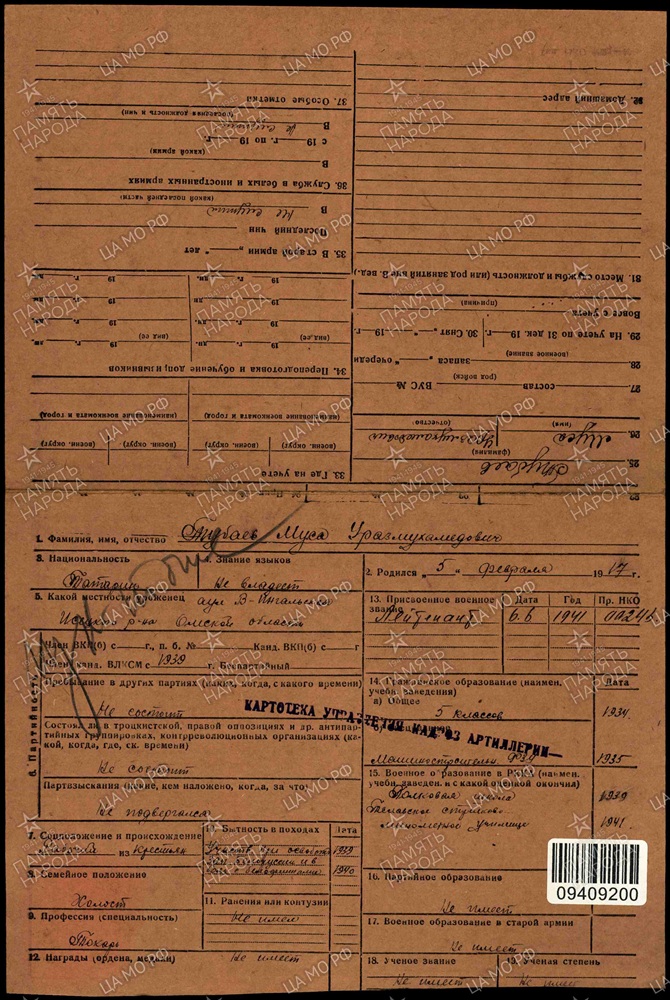 37. Особые отметки
(последняя должность и чин)
В Не служил
с 19 г. по 19 г.
(какой армии)
В
36. Служба в белых и иностранных армиях
(какой последней части)
В Не служил
Последний чин
35. В старой армии „ “ лет
34. Переподготовка и обучение доп. призывников
(наименование военкомата и город) (наименование военкомата и город)
(воен. округ) (воен. округ) (воен. округ) (воен. округ)
33. Где на учете
32. Домашний адрес
31. Место службы и должность (или род занятий вне В. вед.)
(причина)
Вовсе с учета
29. На учете по 31 дек. 19 г. 30. Снят „ “ 19 г.
(военное звание)
28. запаса очереди
(род войск)
27. состав ВУС №
(имя) (отчество)
26. Муса Уразмухамедович
(фамилия)
25. Тубаев
1. Фамилия, имя, отчество Тубаев Муса Уразмухамедович
3. Национальность Татарин
4. Знание языков Не владеет
2. Родился „5“ февраля 1917 г.
5. Какой местности уроженец аул В-Ингальск
Исетского р-на Омской области
13. Присвоенное военное звание Дата Год Пр. НКО
Лейтенант 6.6 1941
6. Партийность
Член ВКП(б) с г., п. б. № Канд. ВКП(б) с г.
Член канд. ВЛКСМ с 1939 г. Беспартийный
Пребывание в других партиях (каких, когда, с какого времени)
Не состоит
14. Гражданское образование (наимен. учебн. заведения) Дата
а) Общее
5 классов 1934
КАРТОТЕКА
АРТИЛЛЕРИИ
Состоял ли в троцкистской, правой оппозиции и др. антипартийных группировках, контрреволюционных организациях (какой, когда, где, ск. времени)
Не состоит
Машиностроительн. ФЗУ 1935
Партвзыскания (какие, кем наложено, когда, за что)
Не подвергался
15. Военное образование в РККА (наимен. учебн. заведен. и с какой оценкой окончил)
Полковая школа 1939
минометное училище 1941
7. Соцположение и происхождение
Рабочий из Крестьян
10. Бытность в походах Дата
1939
1940
8. Семейное положение
Холост
11. Ранения или контузии
Не имел
16. Партийное образование
Не имеет
9. Профессия (специальность)
Токарь
17. Военное образование в старой армии
Не имеет
12. Награды (ордена, медали) Не имеет
18. Ученое звание Не имеет
19. Ученая степень Не имеет
09409200
ЦАМО.РФ
ПАМЯТЬ НАРОДА